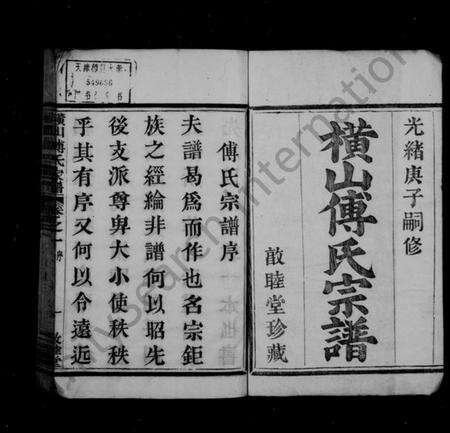 光緒庚子嗣修
橫山傅氏宗譜
敢睦堂珍藏
傅氏宗譜序
夫譜曷為而作也名宗鉅
族之經綸非譜何以昭先
後支派尊卑大小使秩秩
乎其有序又何以令遠近
橫山傅氏宗譜 卷之一 序 一